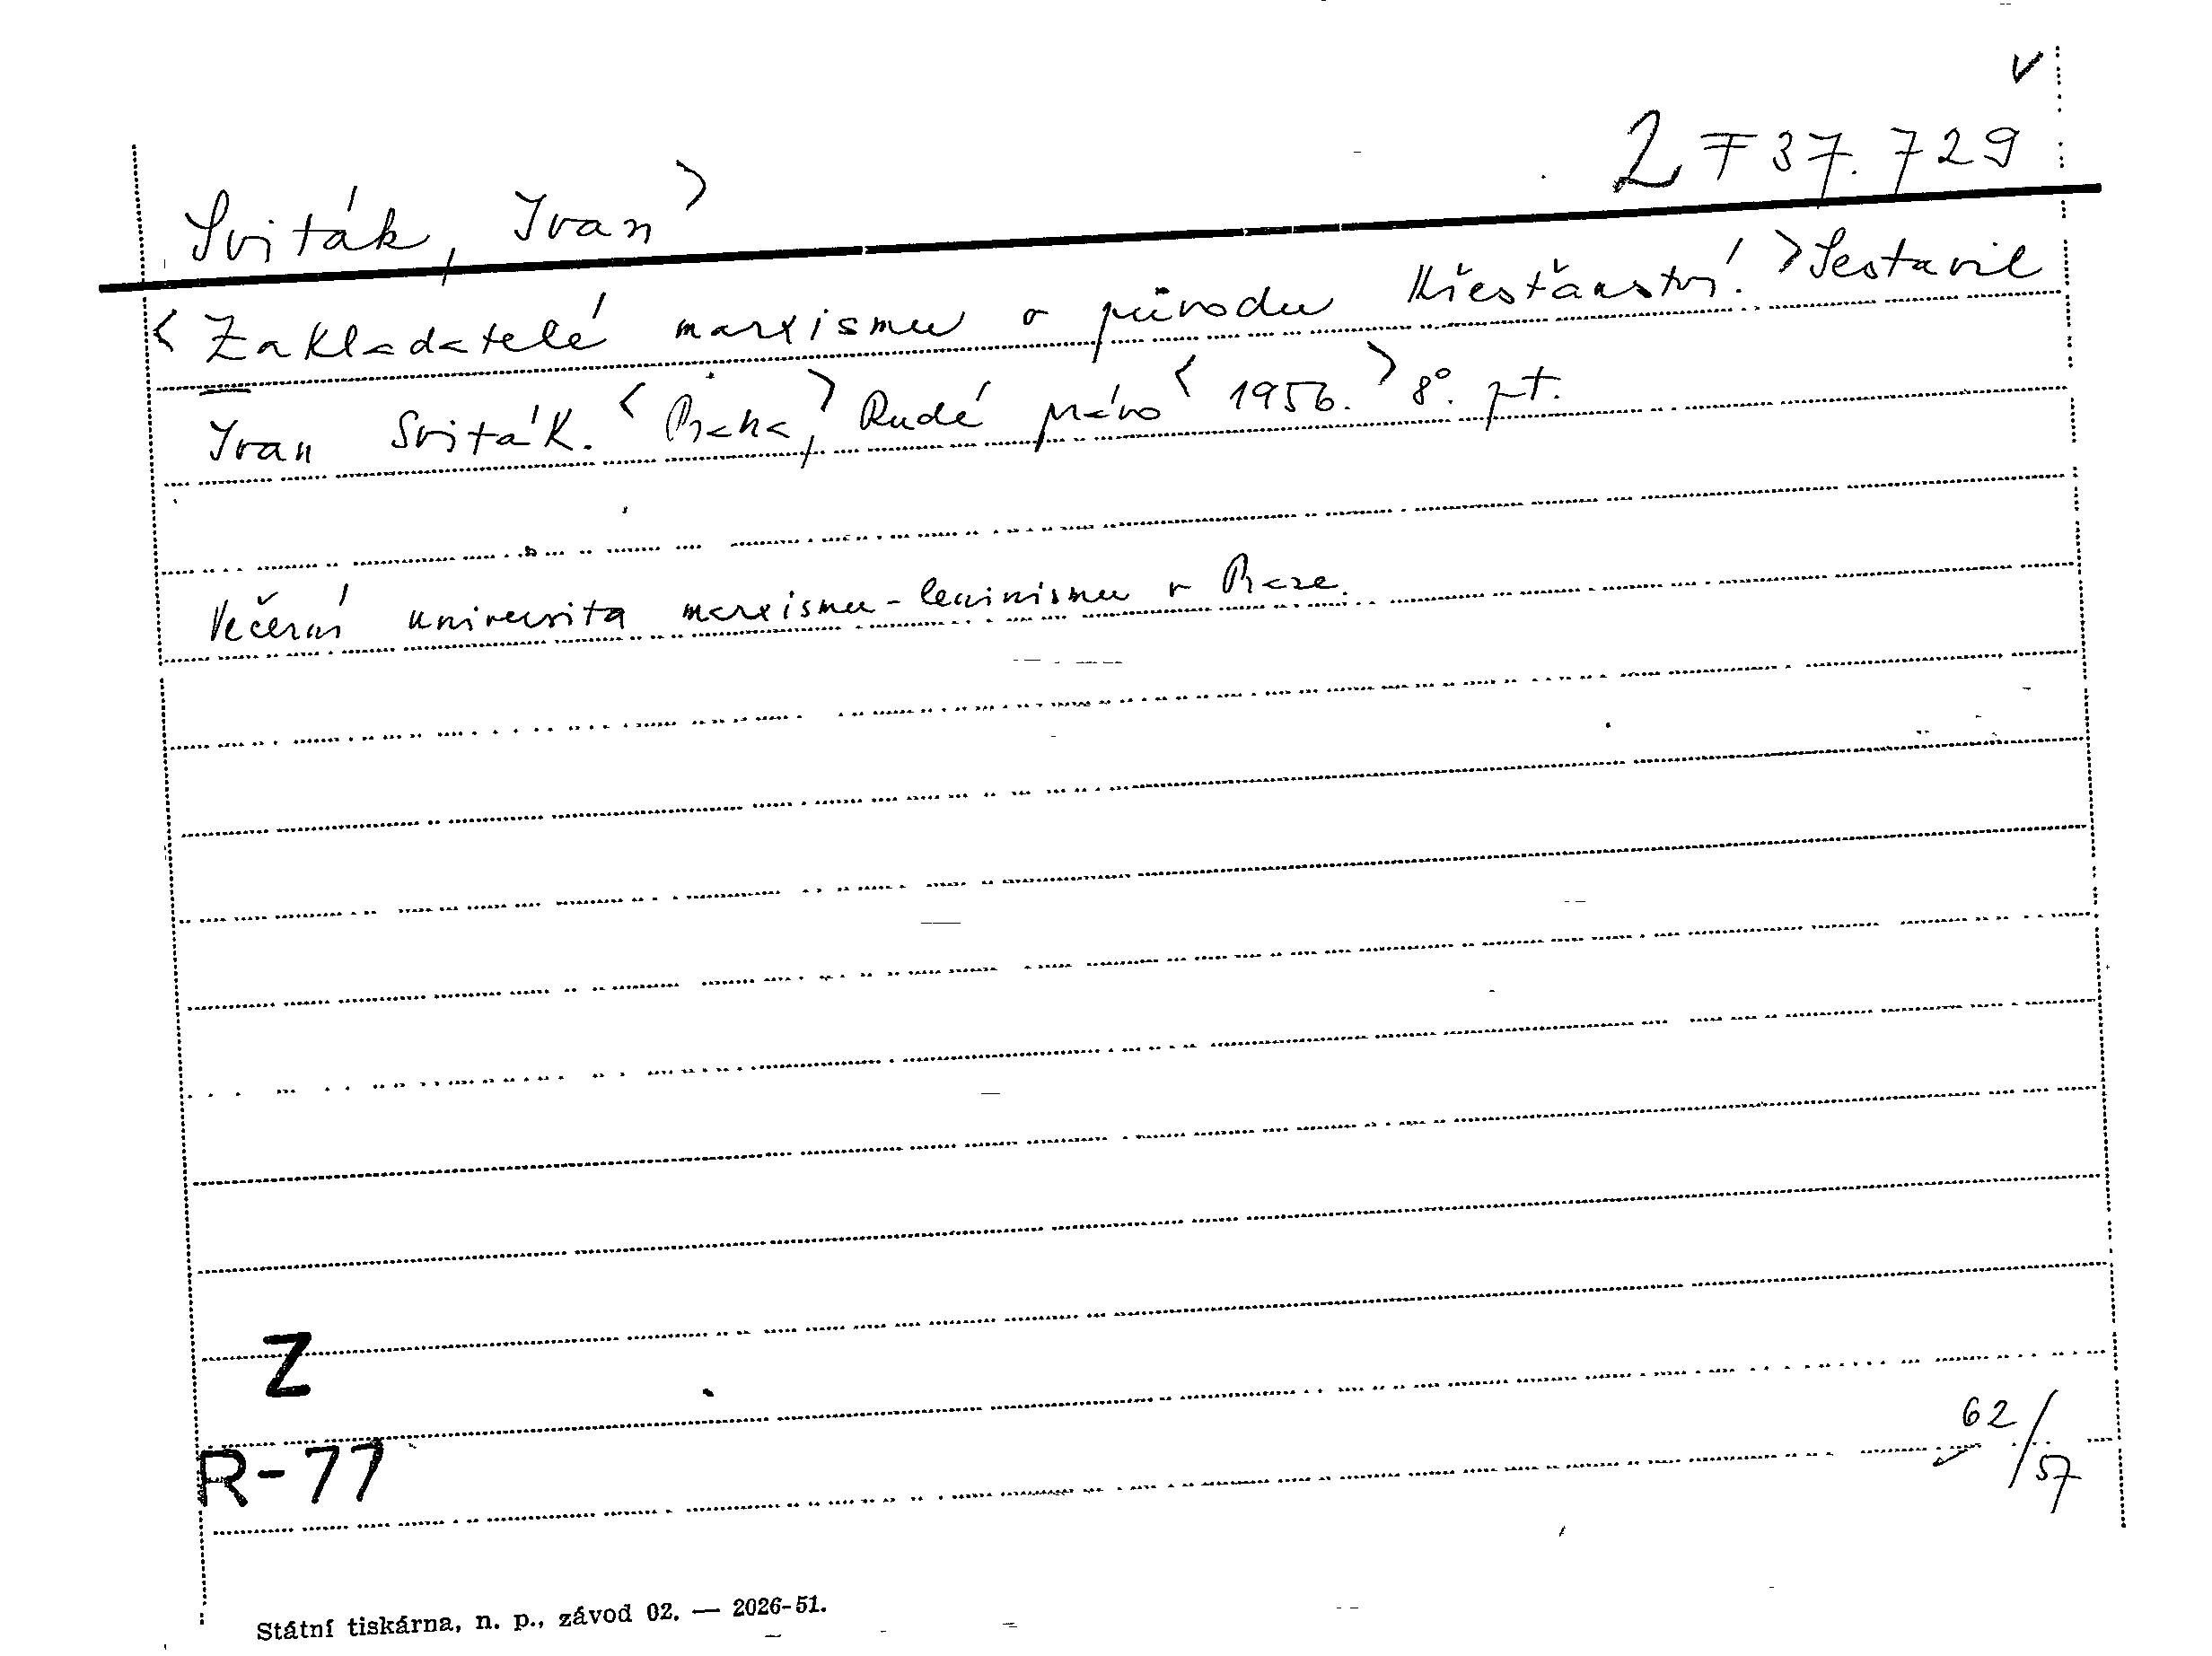 2 F 37.729
Sviták, Ivan >
< Zakladatelé marxismu o původu křesťanství. > Sestavil
Ivan Sviták. < Praha, > Rudé právo < 1956. > 8°.
Večerní universita marxismu-leninismu v Praze.
Z
R-77
62/57
Státní tiskárna, n. p., závod 02. — 2026-51.